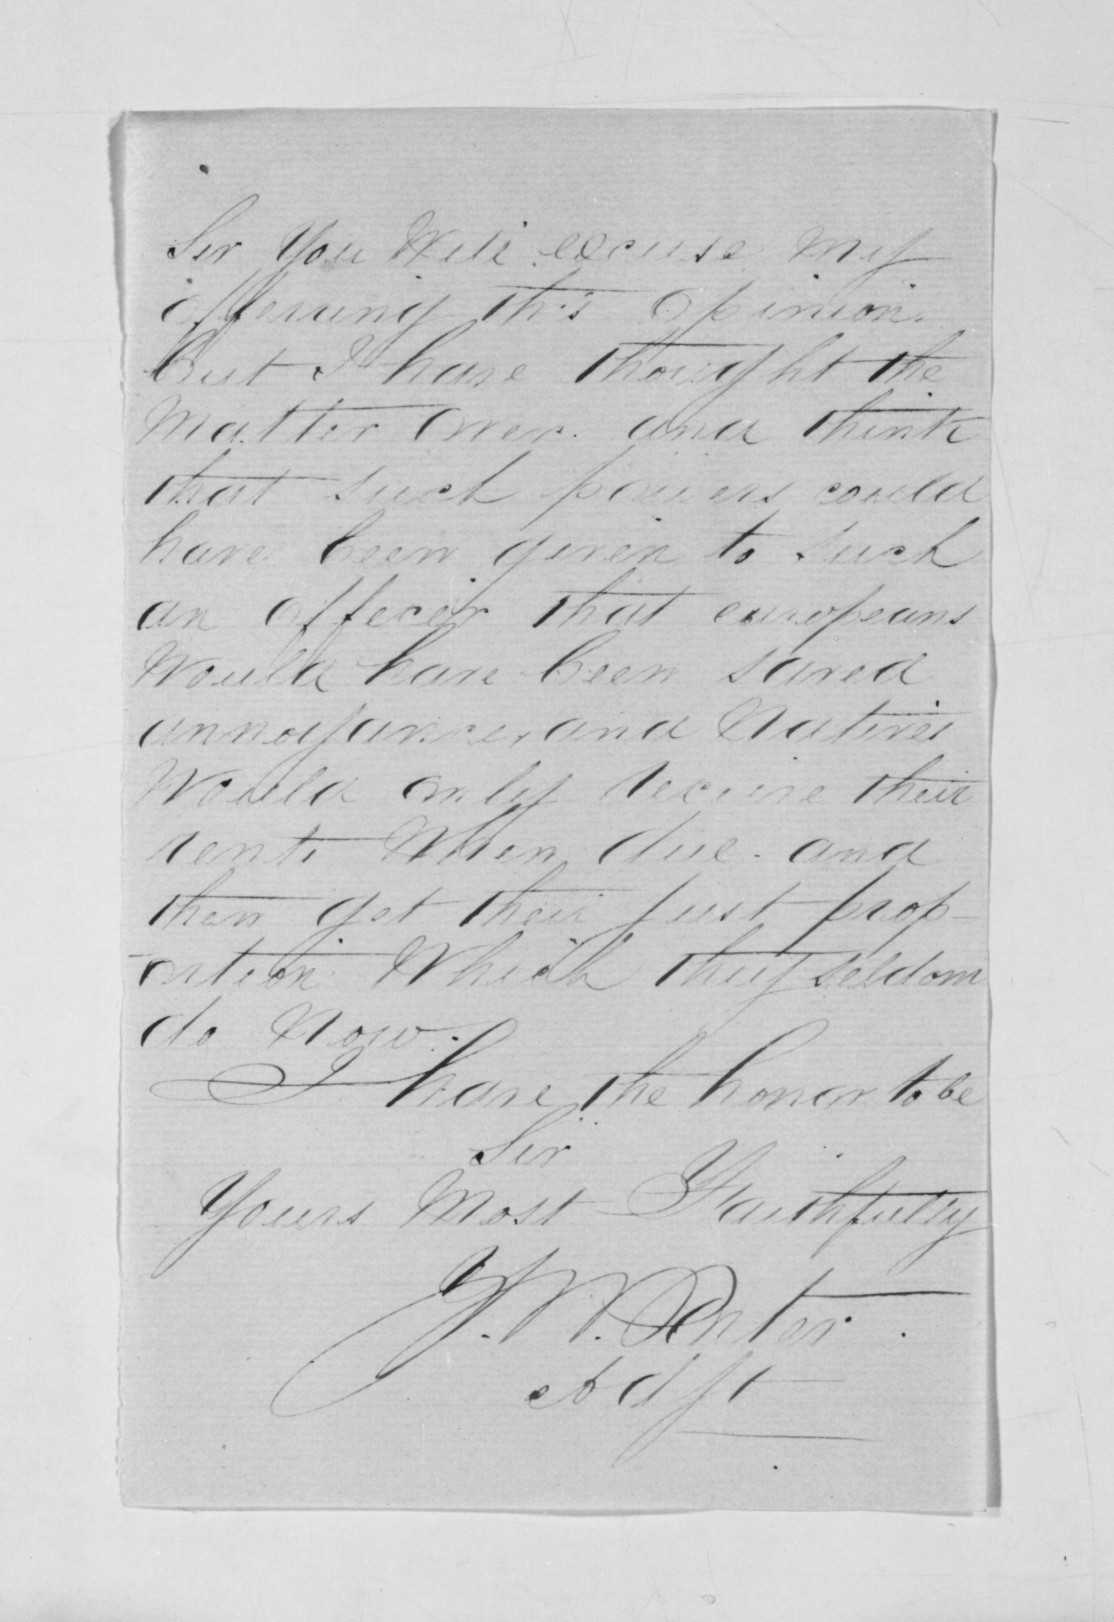 Sir You Will excuse My
offering this opinion.
but I have thought the
Matter over. and think
that such powers could
have been given to such
an officer that europeans
Would have been saved
annoyance, and Natives
Would only receive their
rents When due. and
then get their just prop-
-ortion Which they seldom
do Now.
I have the honor to be
Sir
Yours Most Faithfully
J. W. Porter.
Adjt